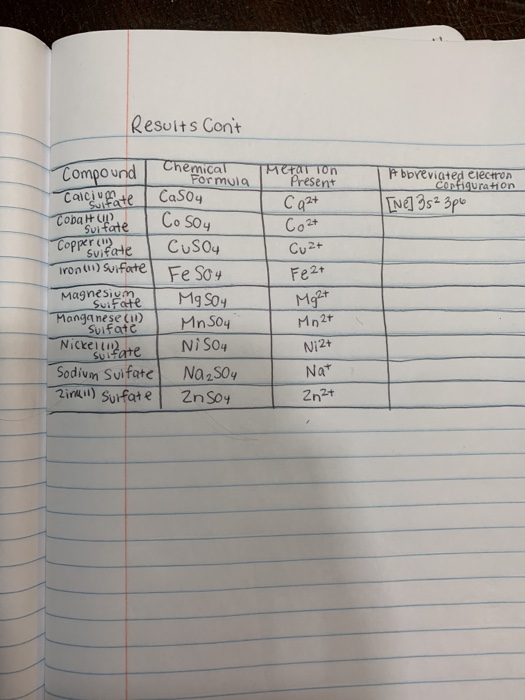 Results Con't
Compound Chemical Formula Metal ion Present Abbreviated electron configuration
Calcium Sulfate CaSO4 Ca2+ [Ne] 3s2 3p6
Cobalt (II) Sulfate CoSO4 Co2+
Copper (II) Sulfate CuSO4 Cu2+
Iron (II) Sulfate FeSO4 Fe2+
Magnesium Sulfate MgSO4 Mg2+
Manganese (II) Sulfate MnSO4 Mn2+
Nickel (II) Sulfate NiSO4 Ni2+
Sodium Sulfate Na2SO4 Na+
Zinc (II) Sulfate ZnSO4 Zn2+